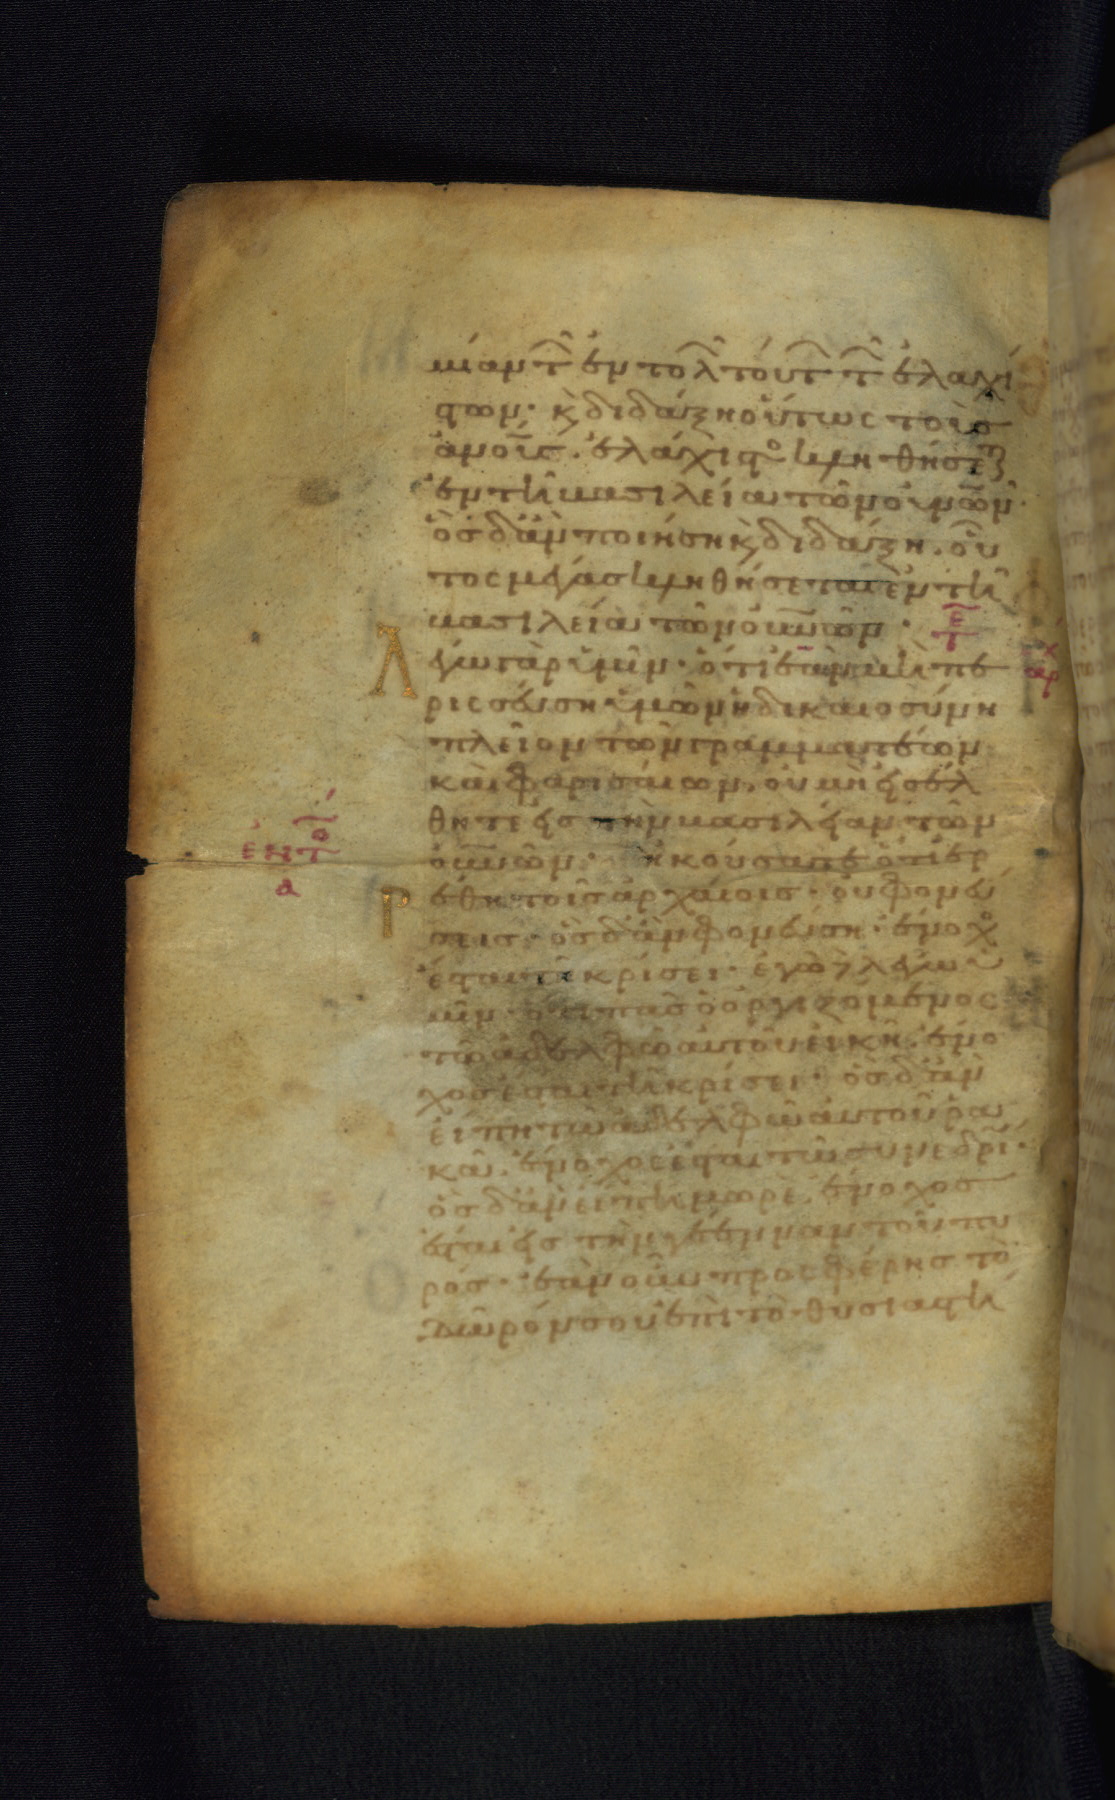 μίαν τ̑ ἐντολ̑ τούτ̑ τ̑ ἐλαχί
στων· κ̀ διδάξη οὕτως τοὺσ
ἀνοῖσ· ἐλάχιστο κληθήσετ
ἐν τῆ βασιλεία τῶν οὐνῶν·
ὃσ δ᾽ ἂν ποιήση κ̀ διδάξη· οὗ
τος μέγασ κληθήσεται ἐν τῆ
βασιλεία τῶν οὐνῶν· 
Λ
έγω γὰρ ὑμῖν· ὅτι ἐὰν μὴ πε
ρισσεύση ὑμῶν ἡ δικαιοσύνη
πλεῖον τῶν γραμματέων
καὶ φαρισαίων· οὐ μὴ εἰσέλ
θητε εἰσ τὴν βασιλείαν τῶν
ἐντολ
οὐνῶν· ἠκούσατε ὅτι ἐρ
α
Ρ
έθη τοῖσ ἀρχαίοισ· οὐ φονεύ
σεισ· ὃσ δ᾽ ἂν φονεύση· ἔνοχο
ἔσται τῆ κρίσει· ἐγὼ δὲ λέγω ὑ
μῖν· ὅτι πᾶσ ὁ ὀργιζόμενος
τῶ ἀδελφῶ αὐτοῦ εἰκῆ· ἔνο
χοσ ἔσται τῆ κρίσει· ὃσ δ᾽ ἂν
εἴπη τῶ ἀδελφῶ αὐτοῦ ρα
κά· ἔνοχος ἔσται τῶ συνεδρί·
ὃσ δ᾽ ἂν εἴπη μωρέ· ἔνοχοσ
ἔσται εἰσ τὴν γέενναν τοῦ πυ
ρόσ· ἐὰν οὖν προσφέρησ τὸ
δῶρόν σου ἐπὶ τὸ θυσιαστή